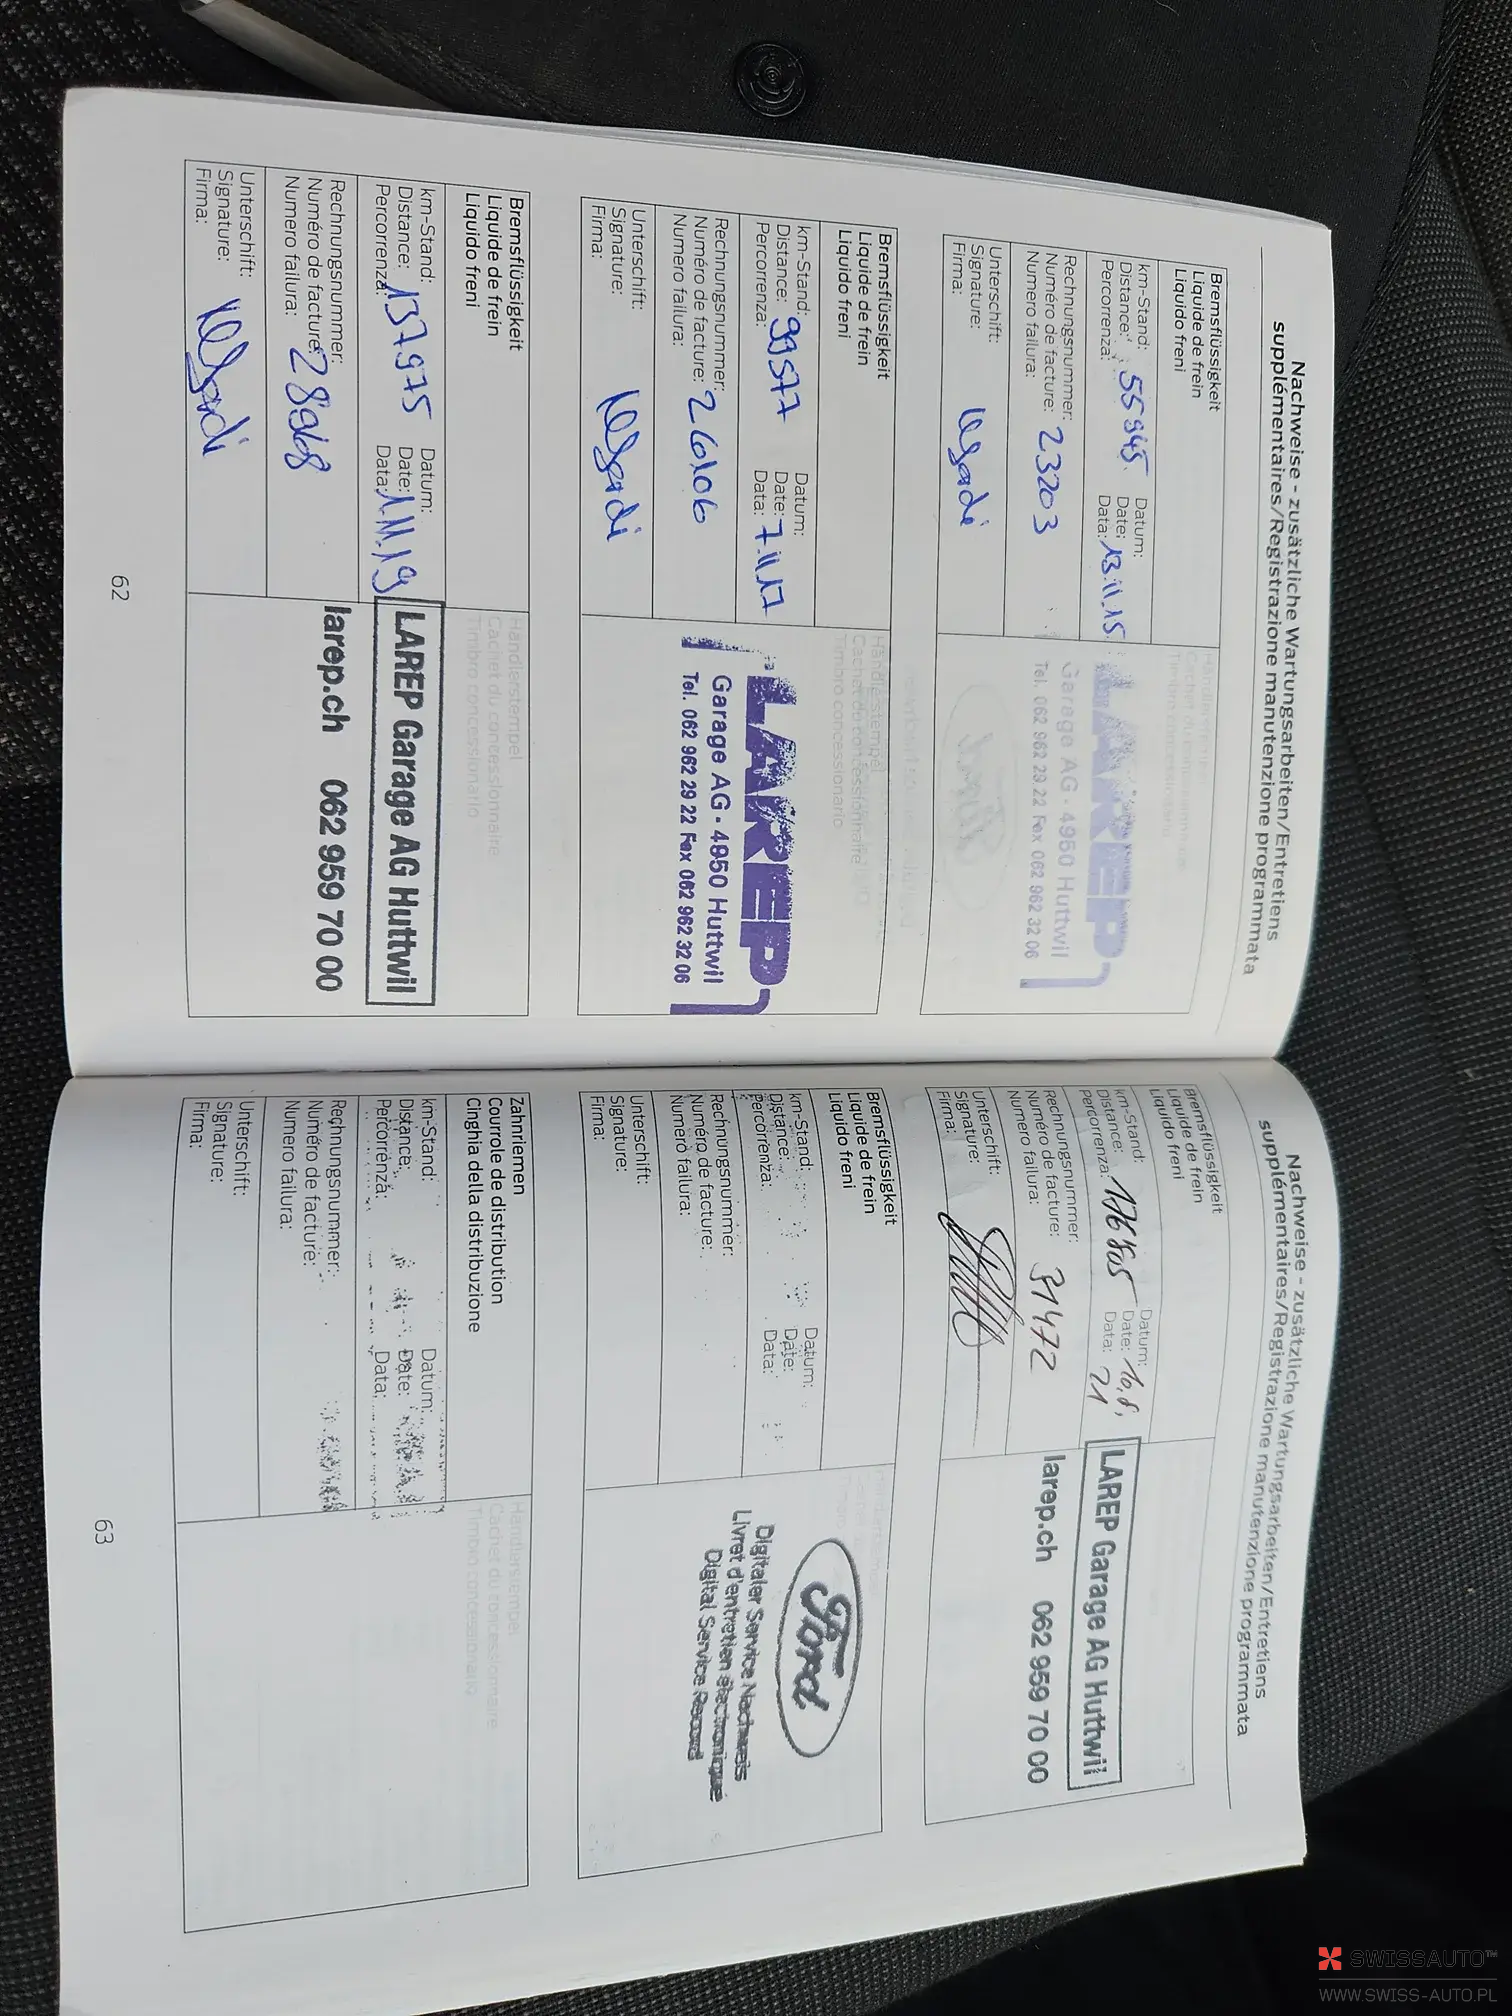 Nachweise - zusätzliche Wartungsarbeiten/Entretiens
supplémentaires/Registrazione manutenzione programmata
Bremsflüssigkeit
Liquide de frein
Liquido freni
km-Stand:
Distance: 55945
Percorrenza:
Datum:
Date: 13.11.15
Data:
Rechnungsnummer:
Numéro de facture: 23203
Numero failura:
Unterschift:
Signature:
Firma:
Händlerstempel
Cachet du concessionnaire
Timbro concessionario
LAREP
Garage AG · 4950 Huttwil
Tel. 062 962 29 22 Fax 062 962 32 06
Bremsflüssigkeit
Liquide de frein
Liquido freni
km-Stand:
Distance: 99577
Percorrenza:
Datum:
Date: 7.11.17
Data:
Rechnungsnummer:
Numéro de facture: 26106
Numero failura:
Unterschift:
Signature:
Firma:
Händlerstempel
Cachet du concessionnaire
Timbro concessionario
LAREP
Garage AG · 4950 Huttwil
Tel. 062 962 29 22 Fax 062 962 32 06
Bremsflüssigkeit
Liquide de frein
Liquido freni
km-Stand:
Distance: 137975
Percorrenza:
Datum:
Date: 1.11.19
Data:
Rechnungsnummer:
Numéro de facture: 28968
Numero failura:
Unterschift:
Signature:
Firma:
Händlerstempel
Cachet du concessionnaire
Timbro concessionario
LAREP Garage AG Huttwil
larep.ch 062 959 70 00
62
Nachweise - zusätzliche Wartungsarbeiten/Entretiens
supplémentaires/Registrazione manutenzione programmata
Bremsflüssigkeit
Liquide de frein
Liquido freni
km-Stand:
Distance: 176805
Percorrenza:
Datum:
Date: 10.8.
Data: 21
Rechnungsnummer:
Numéro de facture: 31472
Numero failura:
Unterschift:
Signature:
Firma:
LAREP Garage AG Huttwil
larep.ch 062 959 70 00
Bremsflüssigkeit
Liquide de frein
Liquido freni
km-Stand:
Distance:
Percorrenza:
Datum:
Date:
Data:
Rechnungsnummer:
Numéro de facture:
Numero failura:
Unterschift:
Signature:
Firma:
Ford
Digitaler Service Nachweis
Livret d'entretien électronique
Digital Service Record
Zahnriemen
Courrole de distribution
Cinghia della distribuzione
km-Stand:
Distance:
Percorrenza:
Datum:
Date:
Data:
Rechnungsnummer:
Numéro de facture:
Numero failura:
Unterschift:
Signature:
Firma:
Händlerstempel
Cachet du concessionnaire
Timbro concessionario
63
SWISSAUTO™
WWW.SWISS-AUTO.PL